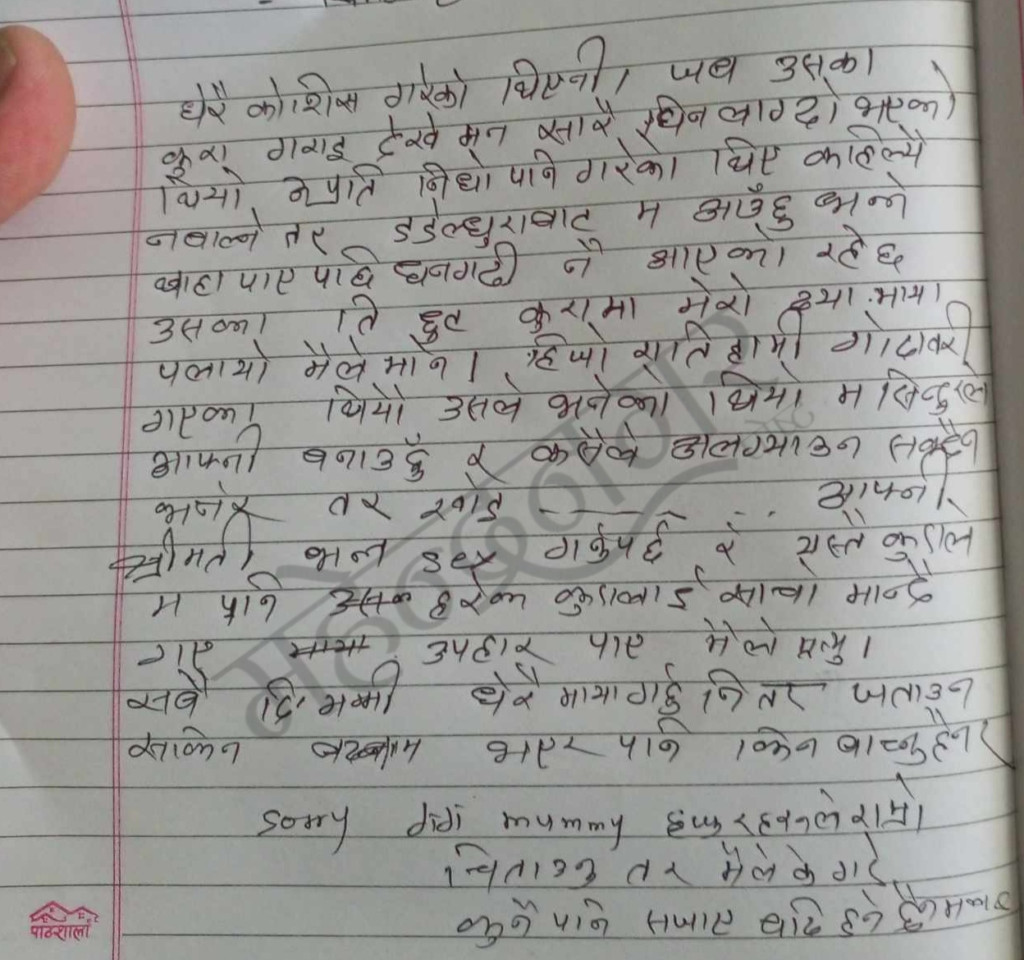 धेरै कोशिस गरेको थिएनी। जब उसका
कुरा गराइ देखे मन सारै घिन लाग्दो भएको
थियो म प्रति निधो पनि गरेका थिए कहिल्यै
नबोल्ने तर डडेल्धुराबाट म आउँछु भन्ने
थाहा पाए पछि धनगढी नै आएको रहेछ
उसका ति झुट कुरामा मेरो दया माया
पलायो मैले माने। हिजो राति हामी गोदावरी
गएका थियौ उसले भनेको थियो म सिन्दुरले
आफ्नी बनाउछु र कसैले अलग्याउन सक्दैन
भनेर तर खोइ ... आफ्नी
श्रीमती भन्न डर गर्नुपर्छ रे यस्तै कुराले
म पनि हरेक कुरालाई साचो मान्दै
गए उपहार पाए मैले मृत्यु।
सबै दि मम्मी धेरै माया गर्छु नि तर जताउन
साकिन बदनाम भएर पनि किन बाच्नुहैनर
Sorry दिदी mummy हजुरहरुले राम्रो
चिताउनु तर मैले के गरे
कुनै पनि सजाए यदि हुने
महेन्द्रनगर
पाठशाला